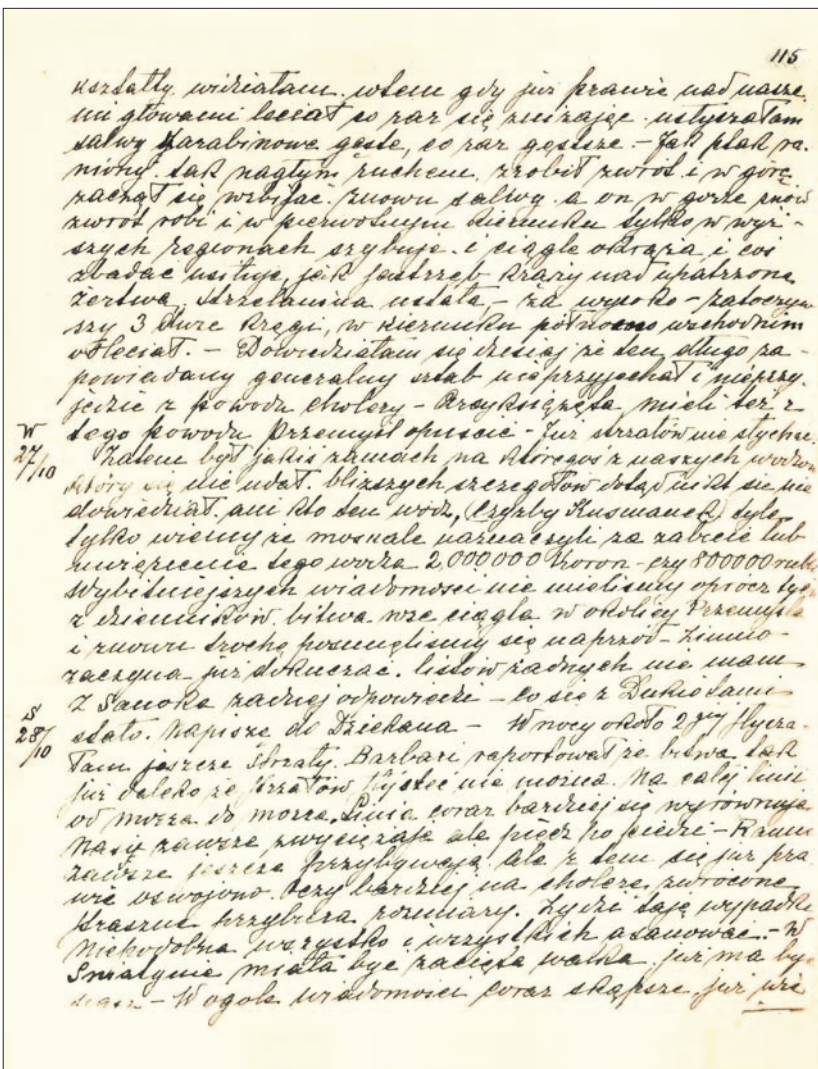 115
kształty widziałam. wtem gdy już prawie nad nasze
mi głowami leciał co raz się zniżając usłyszałam
salwy karabinowe gęste, co raz gęstsze – Jak ptak ra-
niony. tak nagłym ruchem zrobił zwrot i w górę
zaczął się wzbijać. znowu salwy a on w gorze znów
zwrot robi i w pierwotnym kierunku tylko w wyż-
szych regionach szybuje. i ciągle okrąża i coś
zbadać usiłuje, jak jastrząb krąży nad upatrzoną
żertwą. Strzelanina ustała, – za wysoko – zatoczyw
szy 3 duże kręgi, w kierunku północno wschodnim
odleciał. – Dowiedziałam się dzisiaj że ten długo za-
powiadany generalny sztab nieprzyjechał i nieprzy-
jedzie z powodu cholery – Arcyksiążęta mieli też z
tego powodu Przemyśl opuscić – Już strzałów nie słychać.
W
27/10
Zatem był jakiś zamach na któregoś z naszych wodzów
który się nie udał. bliższych szczegółów dotąd nikt się nie
dowiedział. ani kto ten wódz, (czyżby Kusmanek) tyle
tylko wiemy że moskale naznaczyli za zabicie lub
uwięzienie tego wodza 2,000000 Koron – czy 800000 rubli
Wybitniejszych wiadomości nie mieliśmy oprócz tych
z dzienników. bitwa wre ciągle w okolicy Przemyśla
i znowu trochę posunęliśmy się naprzód – Zimno
zaczyna już dokuczać. listów żadnych nie mam
Z Sanoka żadnej odpowiedzi – Co się z Dukiołami
S
28/10
stało. Napisze do Dziekana – W nocy około 2 giej słysza-
łam jeszcze strzały. Barbari raportował że bitwa tak
już daleko że strzałów słyszeć nie można. Na całej linii
od morza do morza. Linia coraz bardziej się wyrównuje
Nasi zawsze zwyciężają ale piędź po piędzi – Ranni
zawsze jeszcze przybywają. ale z tem się już pra
wie oswojono. Oczy bardziej na cholerę zwrócone
straszne przybiera rozmiary. Żydzi tają wypadki
Niepodobna wszystko i wszystkich asanować. – W
Sniatynie miała być zacięta walka już ma być
– W ogóle wiadomości coraz skąpsze już